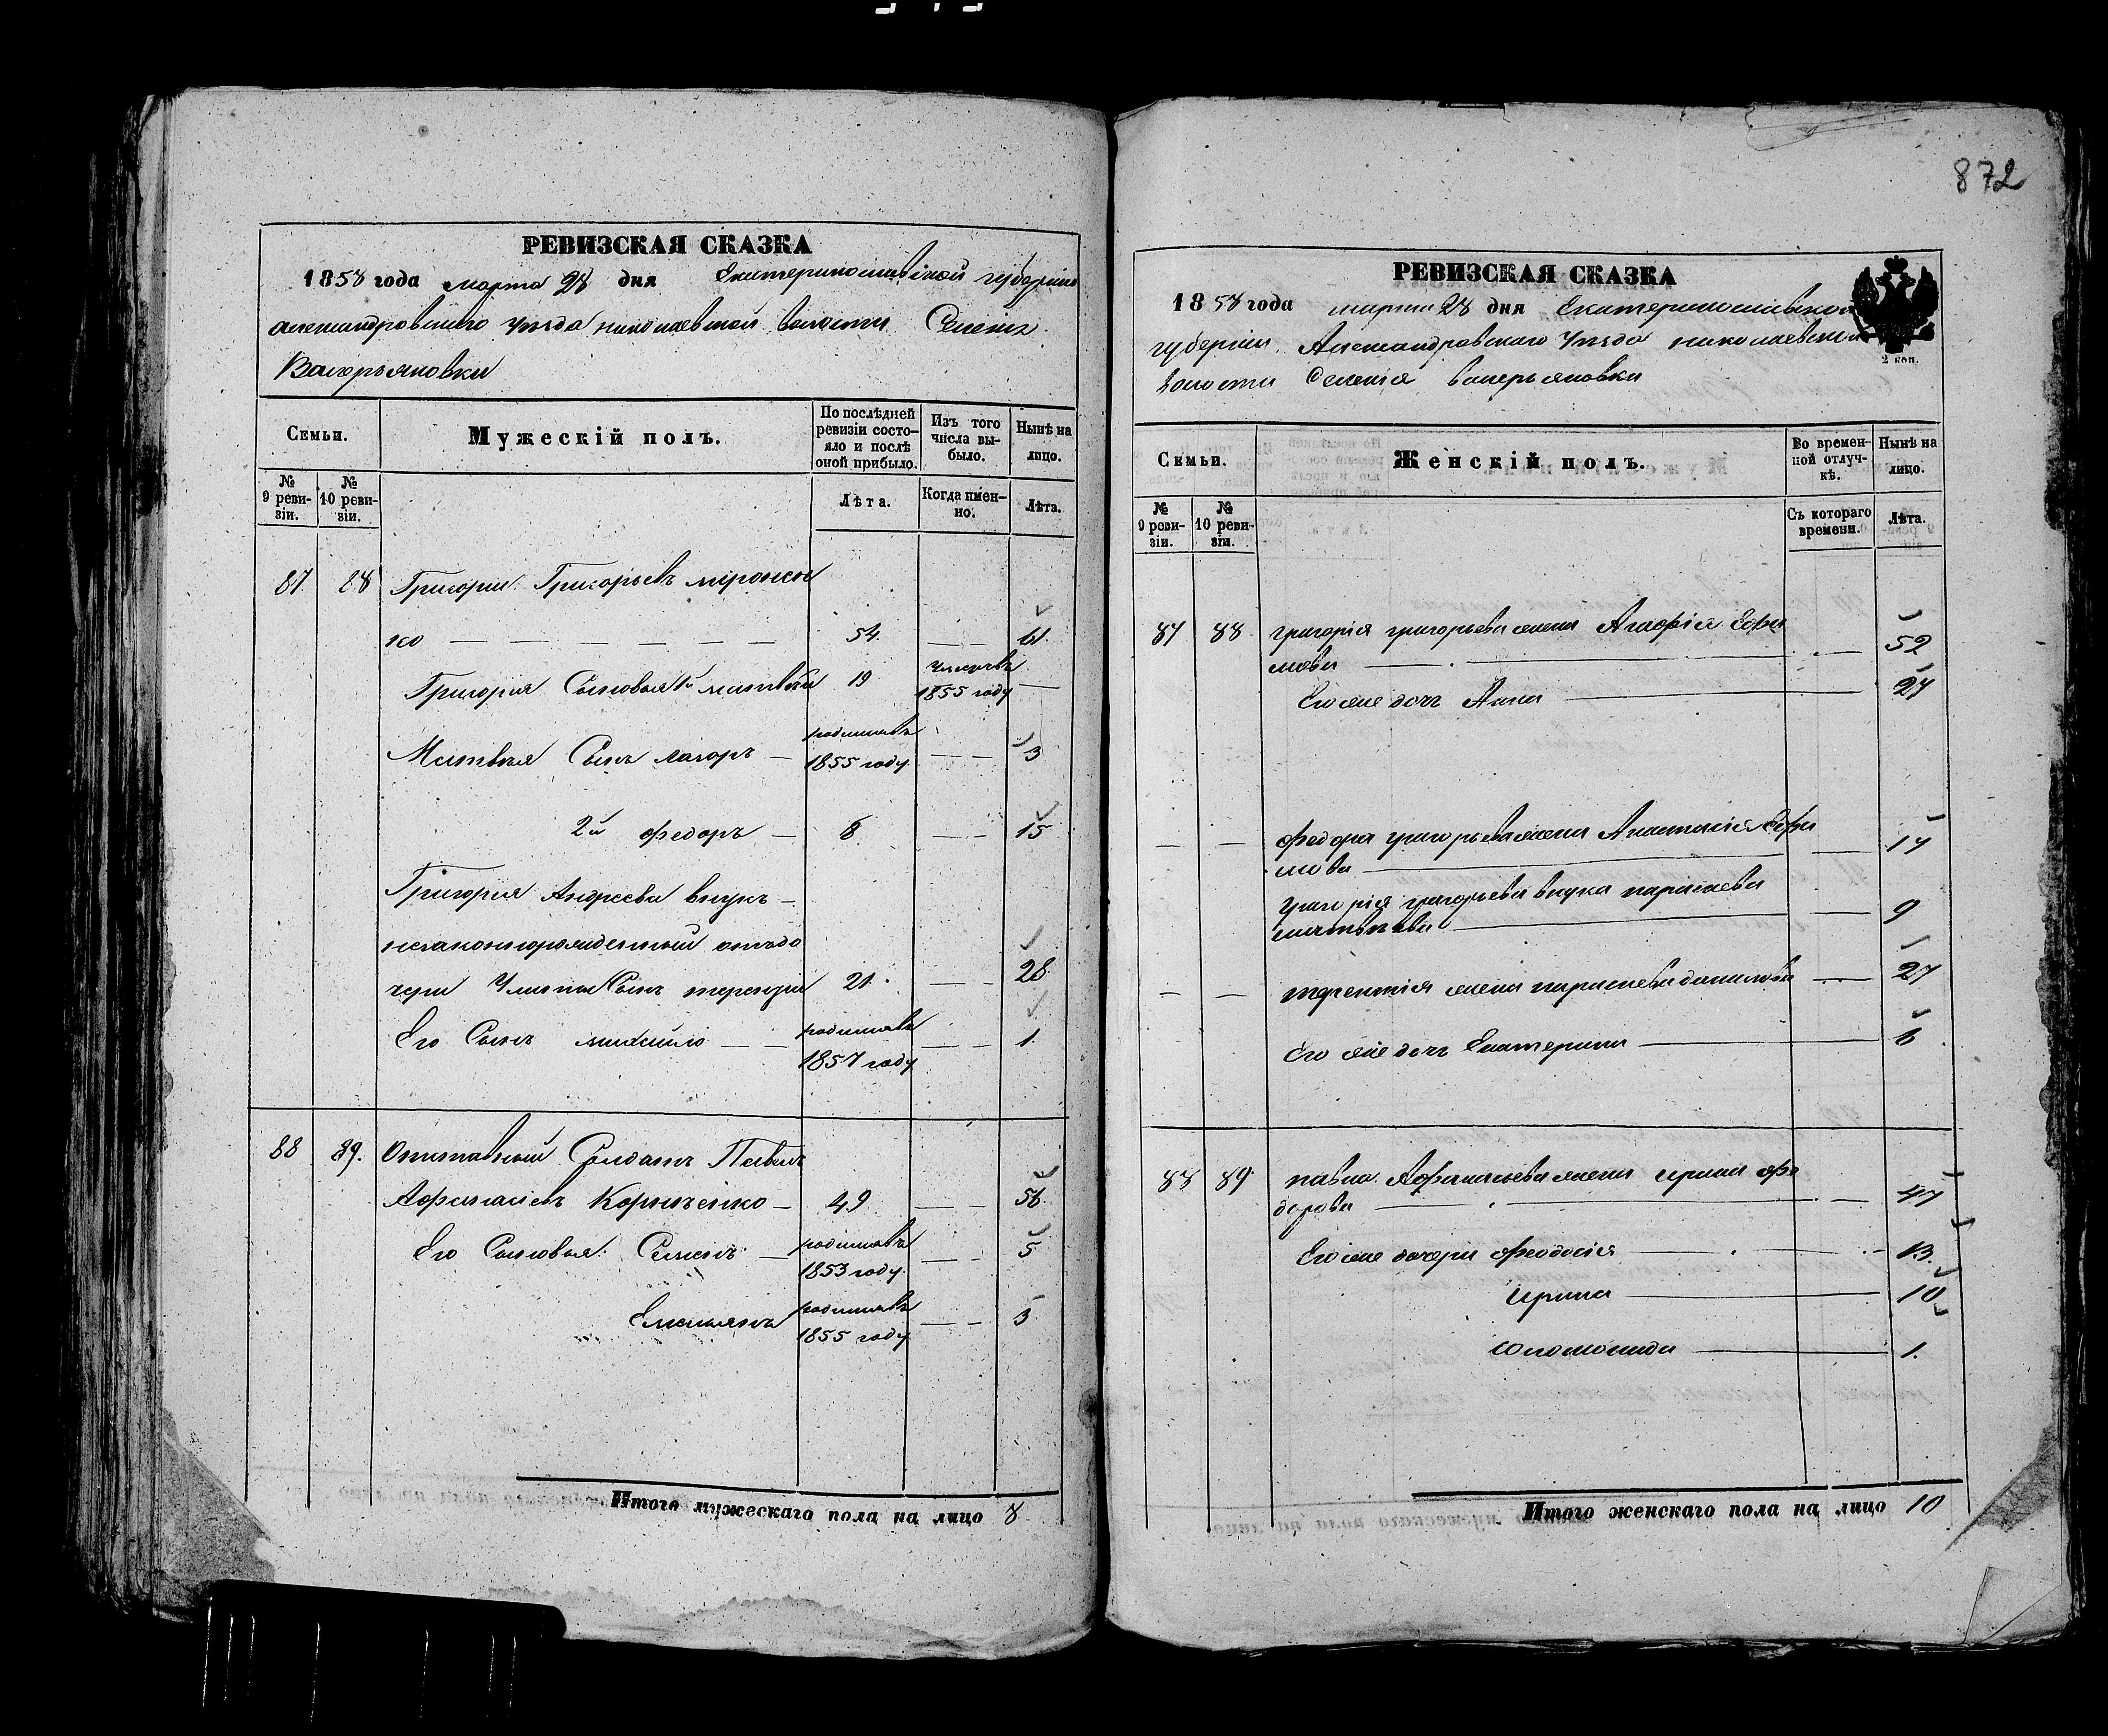 872
РЕВИЗСКАЯ СКАЗКА
1858 года марта 28 дня Екатеринославской губернии
александровского уезда николаевской волости Селения
Валерьяновки
Семьи.
Мужескій полъ.
По послѣдней ревизіи состояло и послѣ оной прибыло.
Изъ того числа выбыло.
Нынѣ на лицо.
№ 9 ревизіи.
№ 10 ревизіи.
Лѣта.
Когда именно.
Лѣта.
87. 88 Григории Григорьевъ миронен

ко — — — — — — 54. — — 61.
Григория Сыновья 1й матвѣй 19 умеръ въ 1855 году —
Матвѣя Сынъ лазоръ — родился въ 1855 году — — 3
2й федоръ — 8 — — 15
Григория Андреева внукъ —
незаконнорожденный отъ до
чери Сынъ терентіи 21. — — 28
Его Сынъ михайло — — родился въ 1857 году — — 1.
88 89. Отставный Солдатъ Павелъ
Афанасіевъ Корниенко — 49 — — 58.
Его Сыновья: Семенъ — родился въ 1853 году — — 5
Емельянъ родился въ 1855 году — — 3
Итого мужескаго пола на лицо 8
РЕВИЗСКАЯ СКАЗКА
1858 года марта 28 дня Екатеринославской
губерніи Александровскаго уезда николаевской
волости Селенія валерьяновки
2 коп.
Семьи.
Женскій полъ.
Во временной отлучкѣ.
Нынѣ на лицо.
№ 9 ревизіи.
№ 10 ревизіи.
Съ котораго времени.
Лѣта.
87 88 григорія григорьева жена Агафія Ефи
мова — — 52
Его же дочь Анна — 27
— — федора григорьева жена Анастасія Ефи
мова — — 17
григорія григорьева внука параскева
матвѣева — — 9
— — терентія жена параскева данилова — 27
Его же дочь Екатерина — 6
88 89 павла Афанасьева жена ирина фе
дорова — — 47
Его же дочери феодосія — 13.
Ирина — 10
Соломонида — 1.
Итого женскаго пола на лицо 10